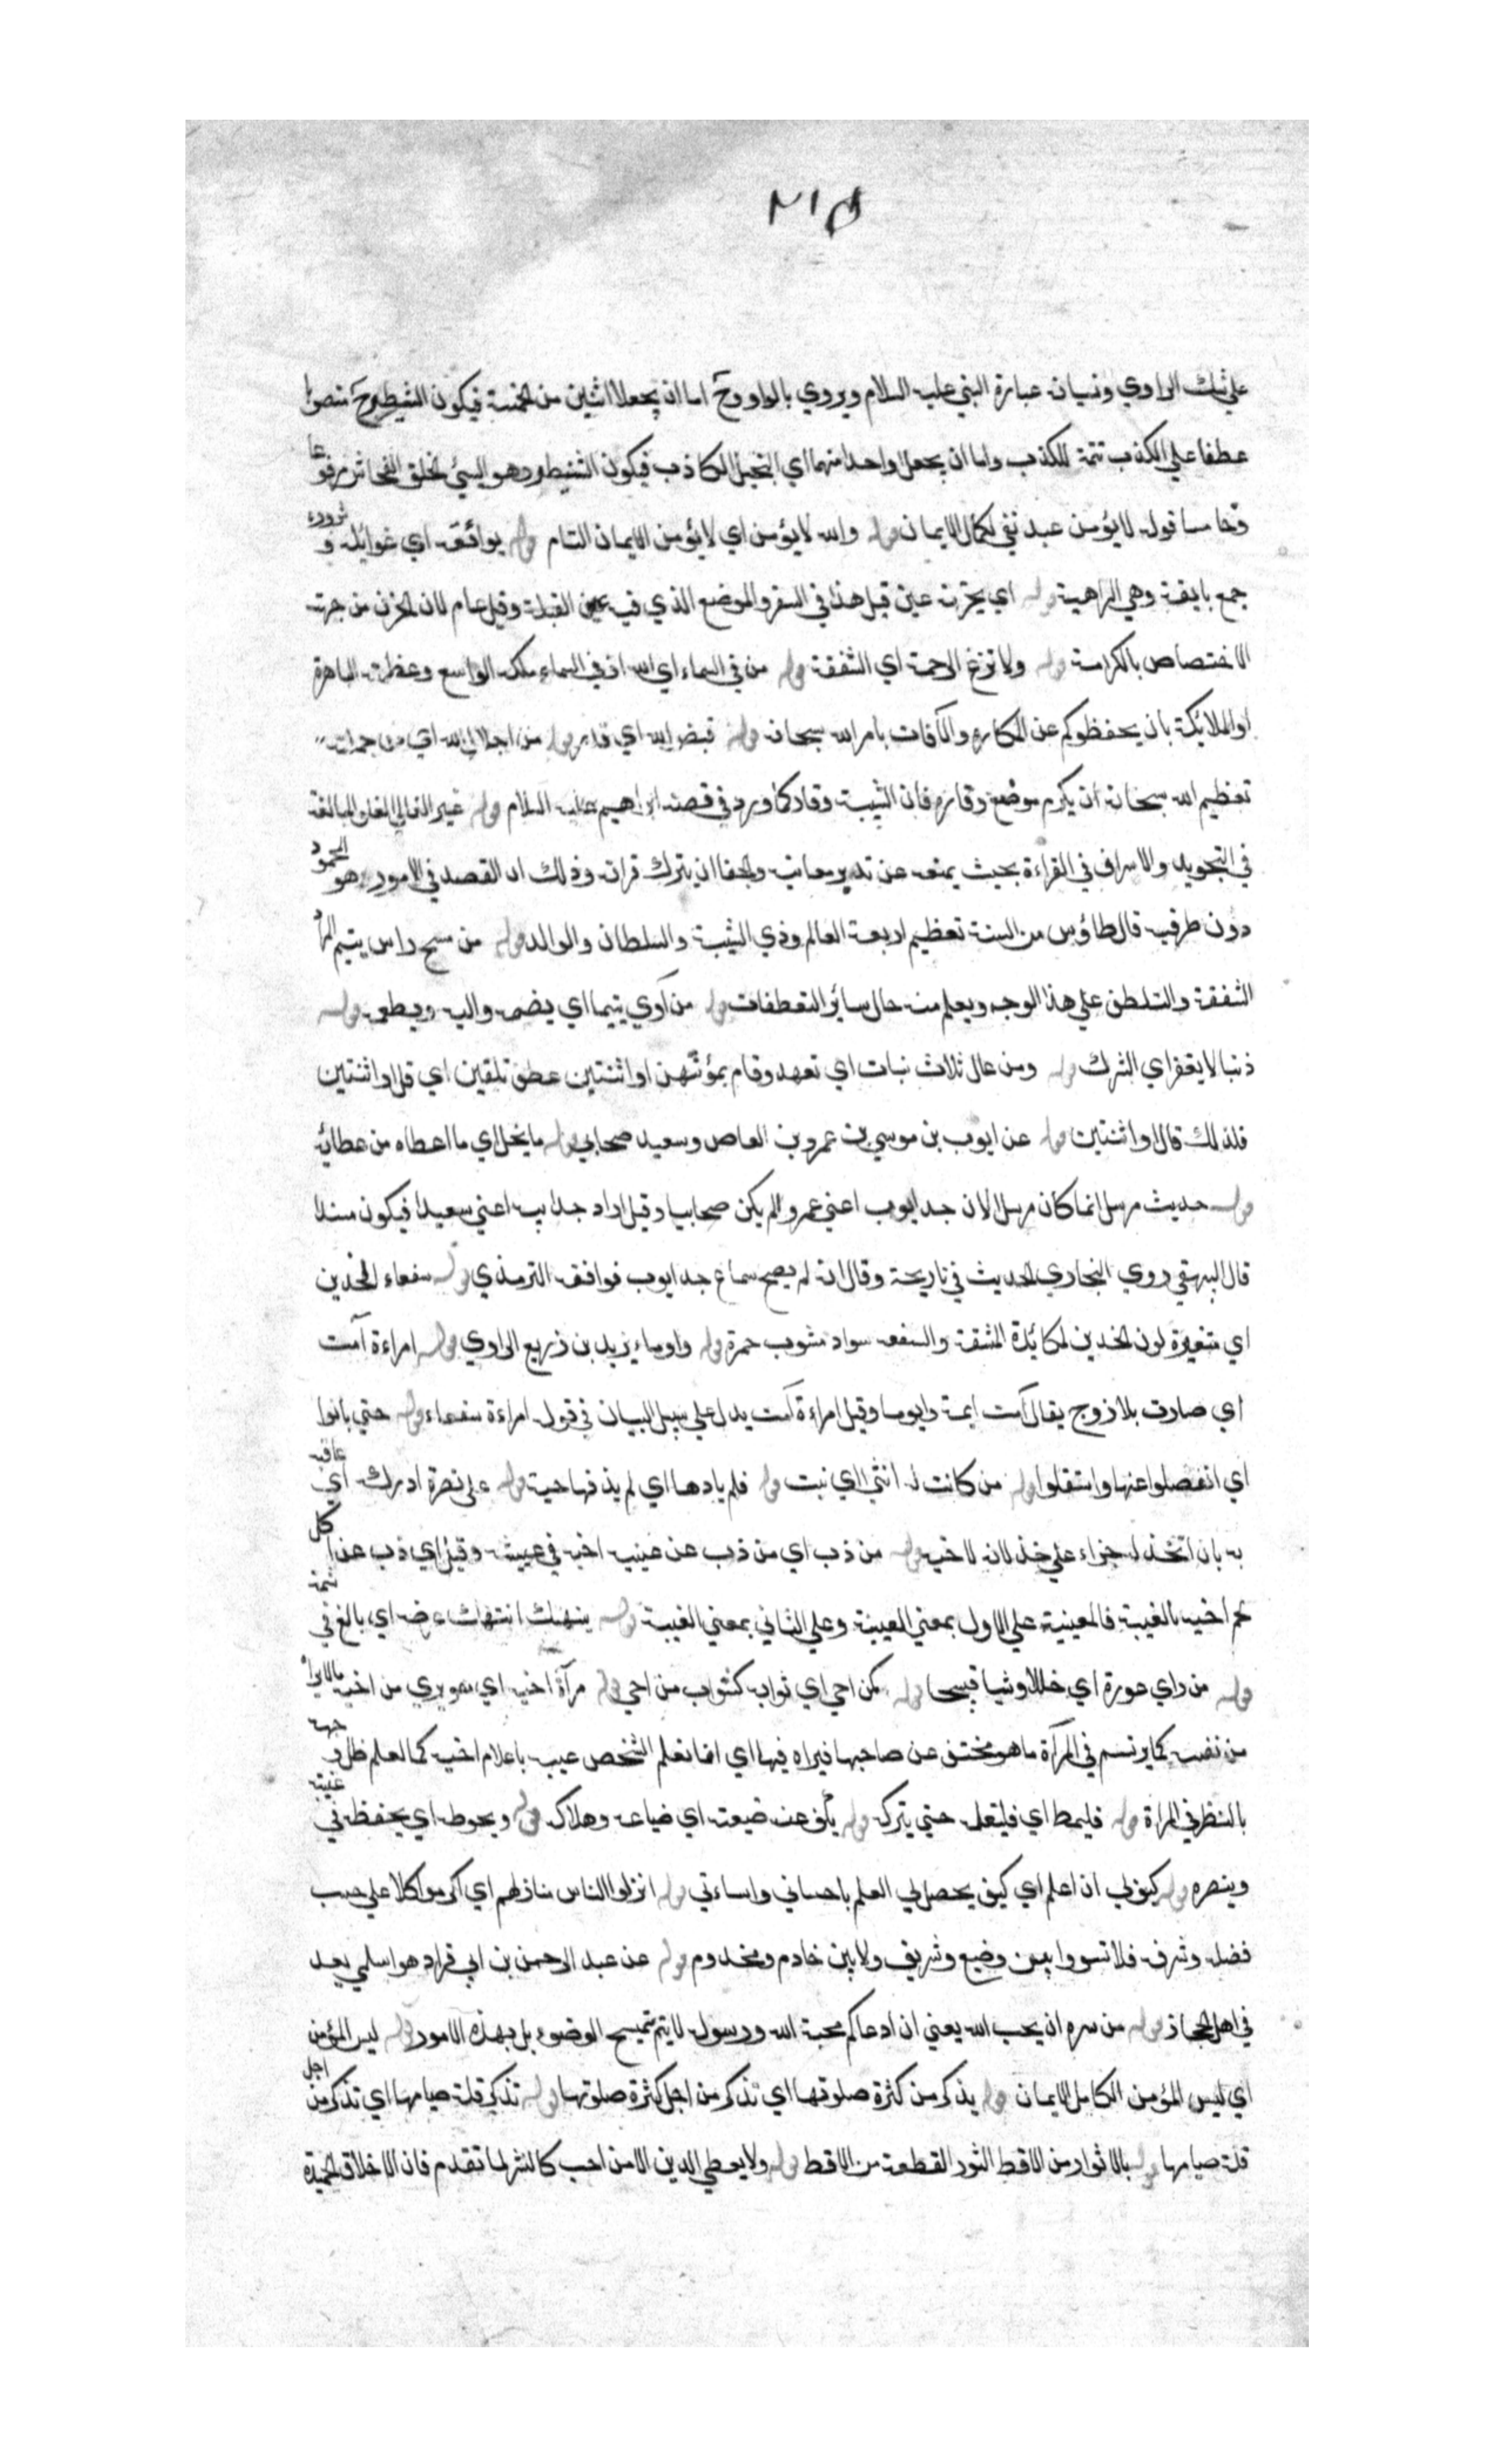 ٢١٥
علي شك الراوي ونسيان عبارة النبي عليه السلام ويروي بالواو وح اما ان يجعلا اثنين من الخمسة فيكون الشنظير ح منصوبا
عطفا علي الكذب تتمة للكذب واما ان يجعل واحدا منهما اي البخيل الكاذب فيكون الشنطير وهو السيئ الخلق الفحاش مرفوعا
وخامسا قوله لا يؤمن عبد نفي لكمال الايمان قوله والله لا يؤمن اي لا يؤمن الايمان التام قوله بوائقه اي غوائله و شروره
جمع بايقة وهي الداهية قوله اي يحزنه عين قبل هذا في السفر والموضع الذي فيه عين القبلة وقيل عام لان الحزن من جهة
الاختصاص بالكرامة قوله ولا تنزع الرحمة اي الشفقة قوله من في السماء اي الله اذ في السماء ملكه الواسع وعظمته الباهرة
او الملائكة بان يحفظوكم عن المكاره والآفات بامر الله سبحانه قوله قيض الله اي قدر قوله من اجلال الله اي من جملة
تعظيم الله سبحانه ان يكرم موضع وقاره فان الشيبة وقار كما ورد في قصة ابراهيم عليه السلام قوله غير الغالي الغلو المبالغة
في التجويد والاسراف في القراءة بحيث يمنعه عن تدبر معانيه والجفا ان يترك قراته وذلك ان القصد في الامور هو المحمود
دون طرفيه قال طاؤس من السنة تعظيم اربعة العالم وذي الشيبة والسلطان والوالد قوله من مسح راس يتيم
الشفقة والتلطف علي هذا الوجه ويعلم منه حال سائر التعطفات قوله من آوي يتيما اي يضمه واليه ويطعمه قوله
ذنبا لا يغفر اي الشرك قوله ومن عال ثلاث نبات اي تعهد وقام بمؤنتهن او اثنتين عطف تلقين اي قل او اثنتين
فلذلك قال او اثنتين قوله عن ايوب بن موسي بن عمرو بن العاص وسعيد صحابي قوله ما نحل اي ما اعطاه من عطائه
قوله حديث مرسل انما كان مرسلا لان جد ايوب اعني عمرو لم يكن صحابيا وقيل اراد جد ابيه اعني سعيدا فيكون مسندا
قال البيهقي روي البخاري الحديث في تاريخه وقال انه لم يصح سماع جد ايوب فوافقه الترمذي قوله سفعاء الخدين
اي متغيرة لون الخدين لمكائدة المشقة والسفعه سواد مشوب حمرة قوله واوماء يزيد بن زريع الراوي قوله امراءة آمت
اي صارت بلا زوج يقال آمت ايمة وايوما وقيل امراءة آمت يدل علي سبيل البيان في قوله امراءة سفعاء قوله حتي بانوا
اي انفصلوا عنها واستقلوا قوله من كانت له انثي اي نبت قوله فلم يادها اي لم يدفنها حية قوله علي نصرة ادركه اي عاقبه
به بان اتخذ له جزاء علي خذلانه لاخيه قوله من ذب اي من ذب عن غيبة اخيه في غيبته وقيل اي ذب عن اكل
لحم اخيه بالغيبة فالمغيبة علي الاول بمعني الغيبة وعلي الثاني بمعني الغيبة قوله ينهتك انتهاك عرضه اي بالغ في شتمه
قوله من راي عورة اي خللا وشيا قبيحا قوله كمن احي اي ثوابه كثواب من احي قوله مرآة اخيه اي من اخيه
من نفسه كما يرتسم في المرآة ما هو مختف عن صاحبها فيراه فيها اي انما تعلم الشخص عيبه باعلام اخيه كما تعلم خلل وجهه
بالنظر في المراة قوله فليمط اي فليفعله حتي يتركه قوله يكف عنه ضيعته اي ضياعه وهلاكه قوله ويحوطه اي يحفظه في غيبته
وينصره قوله كيف لي ان اعلم اي كيف يحصل لي العلم باحساني واساءتي قوله انزلوا الناس منازلهم اي اكرموا كلا علي حسب
فضله وشرفه فلا تسووا بين وضيع وشريف ولا بين خادم ومخدوم قوله عن عبد الرحمن بن ابي قراد هو اسلمي يعد
في اهل الحجاز قوله من سره ان يحب الله يعني ان ادعاكم محبة الله ورسوله لا يتم بتمسيح الوضوء بل بهذه الامور قوله ليس المؤمن
اي ليس المؤمن الكامل الايمان قوله يذكر من كثرة صلوتها اي تذكر من اجل كثرة صلوتها قوله تذكر قلة صيامها اي تذكر من اجل
قلة صيامها قوله بالاثوار من الاقط الثور القطعة من الاقط قوله ولا يعطي الدين الا من احب كالنشر لما تقدم فان الاخلاق الحميدة